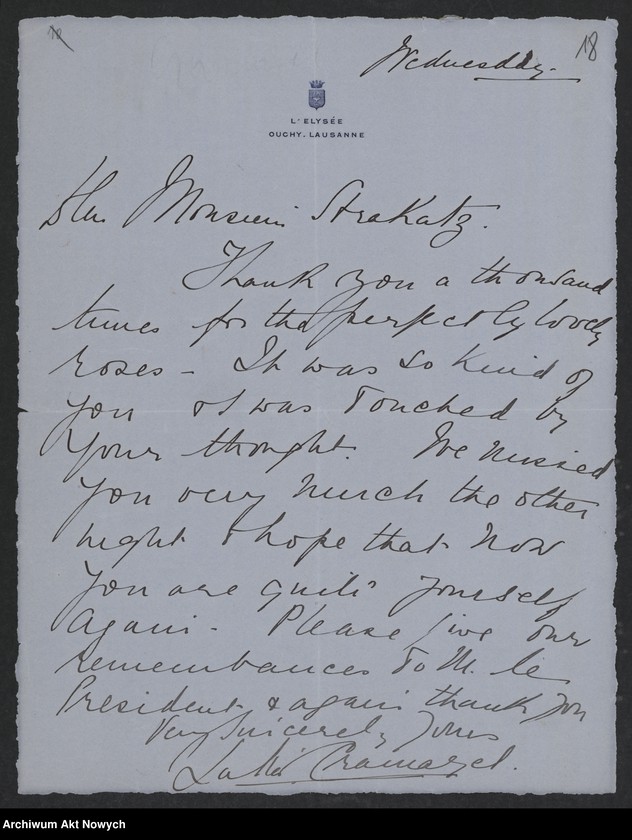 18
Wednesday.
Lr ELYSÉE
OUCHY. LAUSANNE
Dear Monsieur Strakatz.
Thank you a thousand
times for the perfectly lovely
roses - It was so kind of
you & I was touched by
your thought. We missed
you very much the other
night & hope that now
you are quite yourself
again - Please give our
remembrances to M. le
President & again thank you
Very Sincerely Yours
Archiwum Akt Nowych